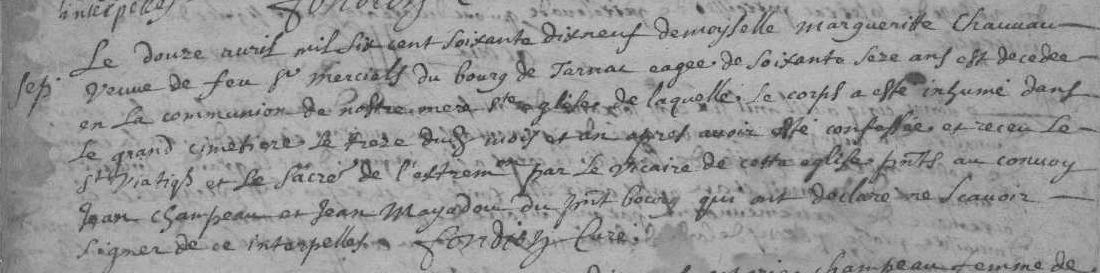 interpelles
Le douze avril mil six cent soixante dixneuf demoyselle margueritte Chauuau
sep. veuue de feu Sr mercials du bourg de Tarnac eagee de soixante seze ans est decedee
en La communion de nostre mere ste eglise de laquelle le corps a esté inhumé dans
Le grand cimetiere le treze dud mois et an apres auoir esté confessée et receu Le
St Viatiq et Le Sacre de l'extreme on par Le Vicaire de cette eglise pnts au conuoy
Jean champeau et Jean Mayadou du pnt bourg qui ont declaré ne scauoir
signer de ce interpelles. Curé
champeau femme de